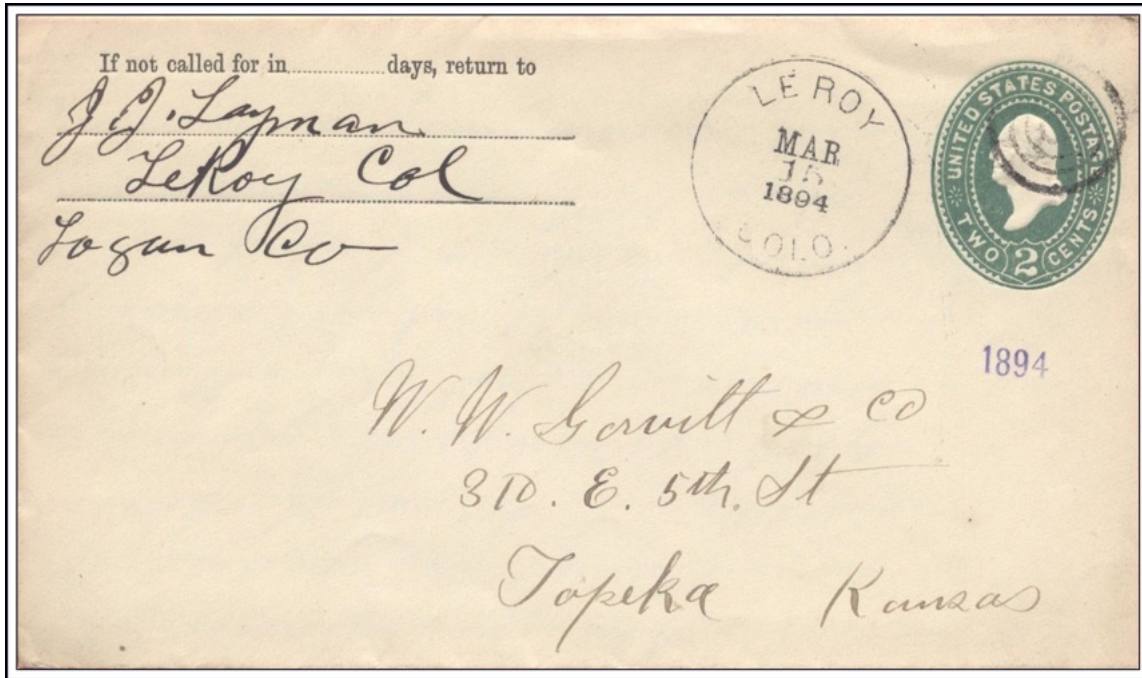 If not called for in ............ days, return to
J. J. Layman
LeRoy Col
Logan Co
LEROY
MAR
15
1894
COLO.
UNITED STATES POSTAGE
TWO 2 CENTS
1894
W. W. & Co
310. E. 5th. St
Topeka Kansas